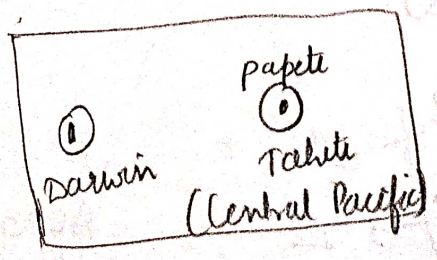 papete
Darwin
Tahete
(Central Pacific)